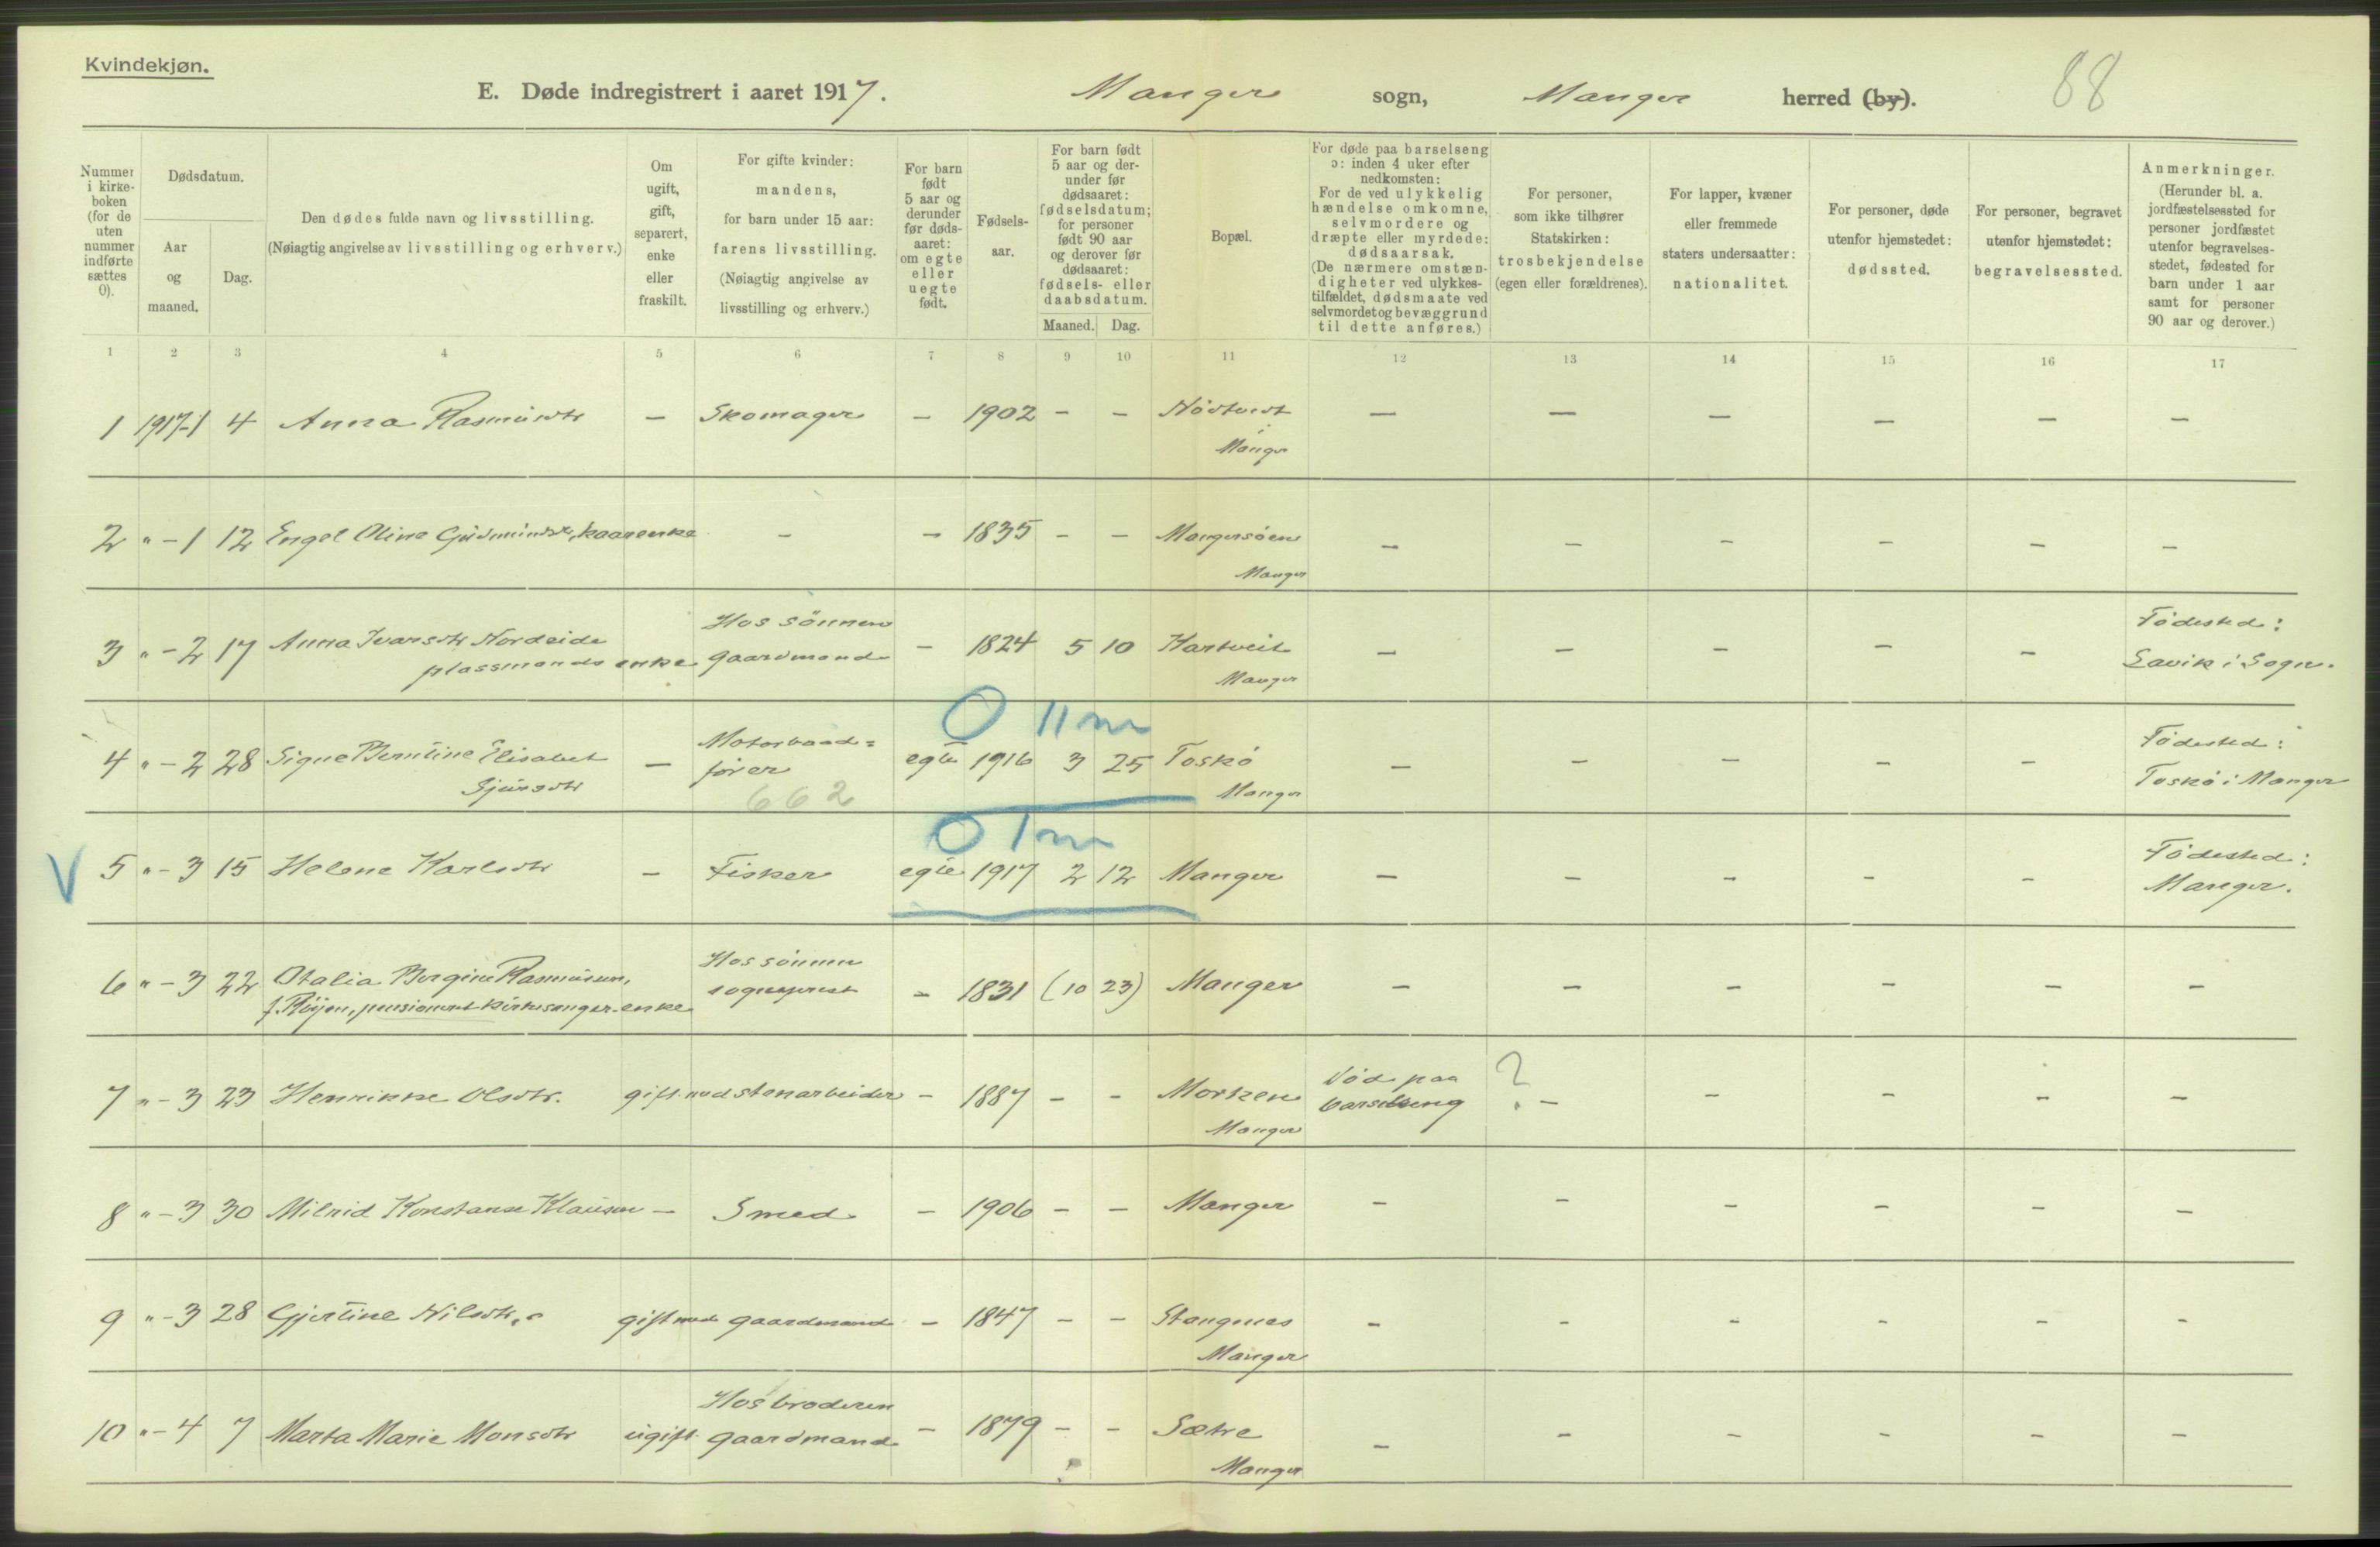 Kvindekjøn.
E. Døde indregistrert i aaret 1917. Manger sogn, Manger herred (by). 88
Nummer i kirkeboken (for de uten nummer indførte sættes 0).
Dødsdatum.
Aar og maaned.
Dag.
Den dødes fulde navn og livsstilling.
(Nøiagtig angivelse av livsstilling og erhverv.)
Om ugift, gift, separert, enke eller fraskilt.
For gifte kvinder: mandens, for barn under 15 aar: farens livsstilling. (Nøiagtig angivelse av livsstilling og erhverv.)
For barn født 5 aar og derunder før dødsaaret: om egte eller uegte født.
Fødselsaar.
For barn født 5 aar og derunder før dødsaaret: fødselsdatum; for personer født 90 aar og derover før dødsaaret: fødsels- eller daabsdatum.
Maaned. Dag.
Bopæl.
For døde paa barselseng ɔ: inden 4 uker efter nedkomsten: For de ved ulykkelig hændelse omkomne, selvmordere og dræpte eller myrdede: dødsaarsak. (De nærmere omstændigheter ved ulykkestilfældet, dødsmaate ved selvmordet og bevæggrund til dette anføres.)
For personer, som ikke tilhører Statskirken: trosbekjendelse (egen eller forældrenes).
For lapper, kvæner eller fremmede staters undersaatter: nationalitet.
For personer, døde utenfor hjemstedet: dødssted.
For personer, begravet utenfor hjemstedet: begravelsessted.
Anmerkninger. (Herunder bl. a. jordfæstelsessted for personer jordfæstet utenfor begravelsesstedet, fødested for barn under 1 aar samt for personer 90 aar og derover.)
1 2 3 4 5 6 7 8 9 10 11 12 13 14 15 16 17
1 1917-1 4 Anna Rasmusdtr - Skomager - 1902 - - Manger - - - - - -
2 " - 1 12 Engel Oline Gudmundsdtr, kaarenke - - 1835 - - Mangersöen Manger - - - - - -
3 " - 2 17 Anna Ivarsdtr Nordeide plassmands enke Hos sönnen gaardmand - 1824 5 10 Hartveit Manger - - - - - Födested: Lavik i Sogn.
0 11 m
4 " - 2 28 Signe Berntine Elisabet Sjursdtr - Motorbaad= förer 662 egte 1916 3 25 Toskö Manger - - - - - Födested: Toskö i Manger
0 1 m
V 5 " - 3 15 Helene Karlsdtr - Fisker egte 1917 2 12 Manger - - - - - Födested: Manger.
6 " - 3 22 Otalia Bergine Rasmussen, f. Röijen, pensioneret kirkesanger-enke Hos sönnen sogneprest - 1831 (10 23) Manger - - - - - -
7 " - 3 23 Henrikke Olsdtr. gift med stenarbeider - 1887 - - Morken Manger Död paa barselseng ? - - - - -
8 " - 3 30 Milrid Konstanse Klausen - Smed - 1906 - - Manger - - - - - -
9 " - 3 28 Gjertine Nilsdtr. gift med gaardmand - 1847 - - Stangnes Manger - - - - - -
10 " - 4 7 Marta Marie Monsdtr ugift Hos broderen gaardmand - 1879 - - Sætre Manger - - - - - -